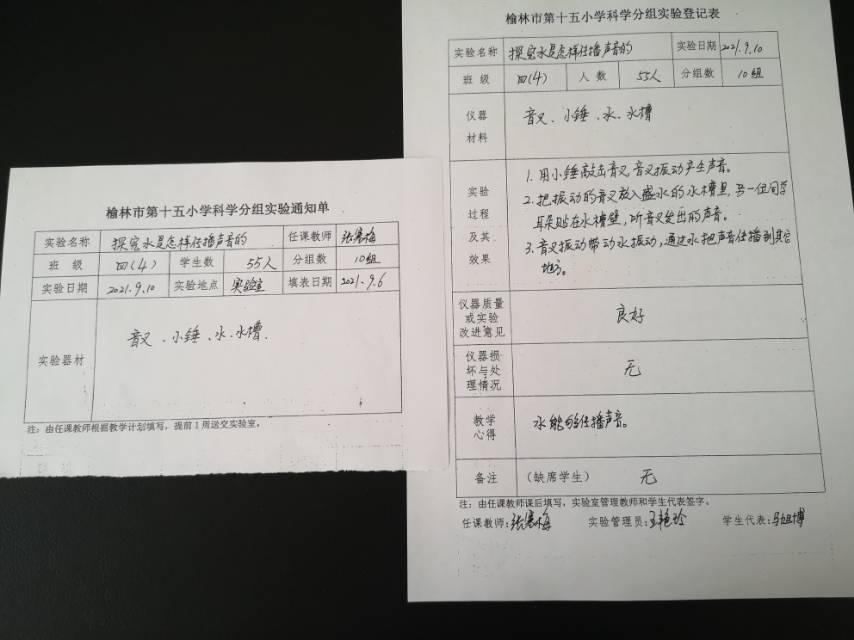 榆林市第十五小学科学分组实验通知单
实验名称 探究水是怎样传播声音的 任课教师 张寒梅
班 级 四(4) 学生数 55人 分组数 10组
实验日期 2021.9.10 实验地点 实验室 填表日期 2021.9.6
实验器材 音叉、小锤、水、水槽.
注：由任课教师根据教学计划填写，提前1周送交实验室。
榆林市第十五小学科学分组实验登记表
实验名称 探究水是怎样传播声音的 实验日期 2021.9.10
班 级 四(4) 人 数 55人 分组数 10组
仪器
材料
音叉、小锤、水、水槽
实验
过程
及其
效果
1.用小锤敲击音叉,音叉振动产生声音。
2.把振动的音叉放入盛水的水槽里,另一位同学
耳朵贴在水槽壁,听音叉发出的声音。
3.音叉振动带动水振动,通过水把声音传播到其它
地方。
仪器质量
或实验
改进意见
良好
仪器损
坏与处
理情况
无
教学
心得
水能够传播声音。
备注 (缺席学生) 无
注：由任课教师课后填写，实验室管理教师和学生代表签字。
任课教师:张寒梅 实验管理员:王艳玲 学生代表: